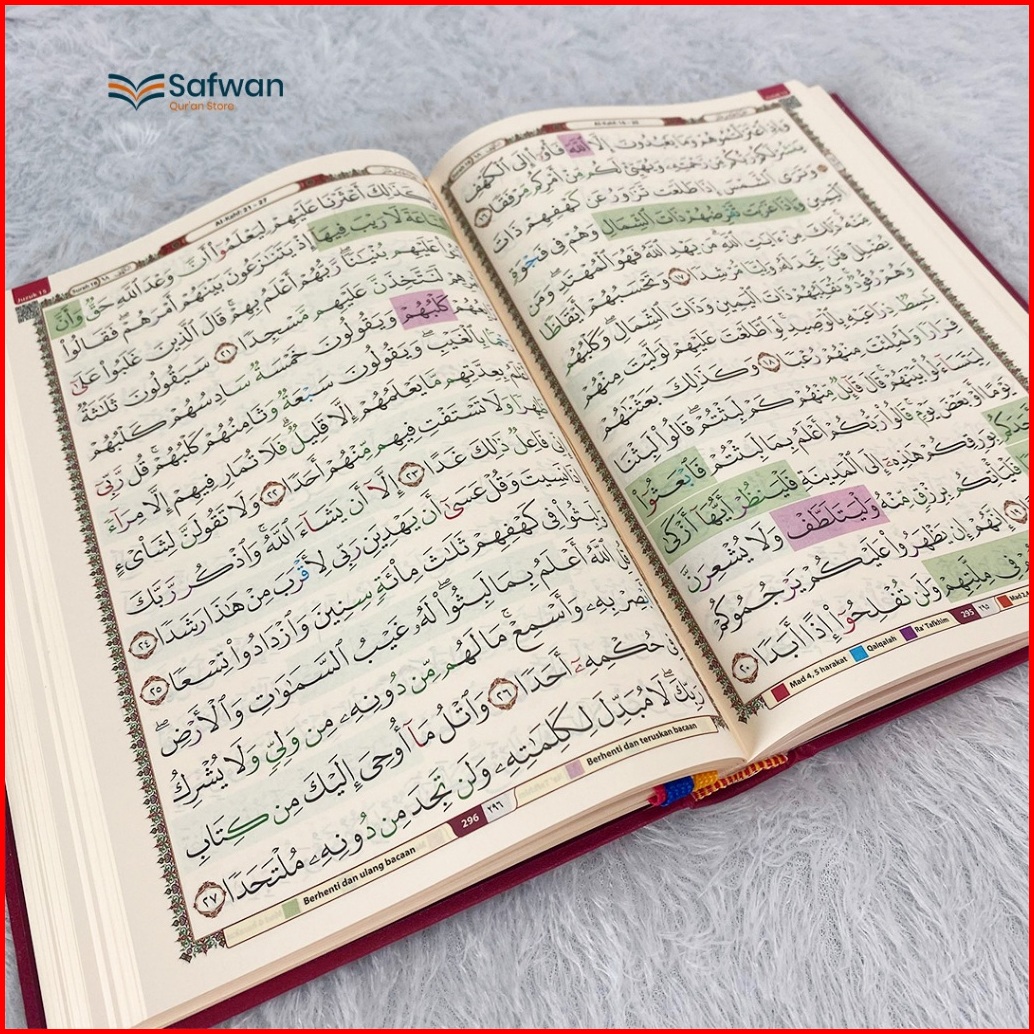 Safwan
Qur'an Store
Al-Kahf 16 - 20
وَإِذِ ٱعْتَزَلْتُمُوهُمْ وَمَا يَعْبُدُونَ إِلَّا ٱللَّهَ فَأْوُۥٓا۟ إِلَى ٱلْكَهْفِ
يَنشُرْ لَكُمْ رَبُّكُم مِّن رَّحْمَتِهِۦ وَيُهَيِّئْ لَكُم مِّنْ أَمْرِكُم مِّرْفَقًا ١٦
وَتَرَى ٱلشَّمْسَ إِذَا طَلَعَت تَّزَٰوَرُ عَن كَهْفِهِمْ ذَاتَ
ٱلْيَمِينِ وَإِذَا غَرَبَت تَّقْرِضُهُمْ ذَاتَ ٱلشِّمَالِ وَهُمْ فِى فَجْوَةٍ
مِّنْهُ ۚ ذَٰلِكَ مِنْ ءَايَٰتِ ٱللَّهِ ۗ مَن يَهْدِ ٱللَّهُ فَهُوَ ٱلْمُهْتَدِ ۖ وَمَن
يُضْلِلْ فَلَن تَجِدَ لَهُۥ وَلِيًّا مُّرْشِدًا ١٧ وَتَحْسَبُهُمْ أَيْقَاظًا
وَهُمْ رُقُودٌ ۚ وَنُقَلِّبُهُمْ ذَاتَ ٱلْيَمِينِ وَذَاتَ ٱلشِّمَالِ ۖ وَكَلْبُهُم
بَٰسِطٌ ذِرَاعَيْهِ بِٱلْوَصِيدِ ۚ لَوِ ٱطَّلَعْتَ عَلَيْهِمْ لَوَلَّيْتَ مِنْهُمْ
فِرَارًا وَلَمُلِئْتَ مِنْهُمْ رُعْبًا ١٨ وَكَذَٰلِكَ بَعَثْنَٰهُمْ
لِيَتَسَآءَلُوا۟ بَيْنَهُمْ ۚ قَالَ قَآئِلٌ مِّنْهُمْ كَمْ لَبِثْتُمْ ۖ قَالُوا۟ لَبِثْنَا
يَوْمًا أَوْ بَعْضَ يَوْمٍ ۚ قَالُوا۟ رَبُّكُمْ أَعْلَمُ بِمَا لَبِثْتُمْ فَٱبْعَثُوٓا۟
أَحَدَكُم بِوَرِقِكُمْ هَٰذِهِۦٓ إِلَى ٱلْمَدِينَةِ فَلْيَنظُرْ أَيُّهَآ أَزْكَىٰ
فَلْيَأْتِكُم بِرِزْقٍ مِّنْهُ وَلْيَتَلَطَّفْ وَلَا يُشْعِرَنَّ
١٩ إِنَّهُمْ إِن يَظْهَرُوا۟ عَلَيْكُمْ يَرْجُمُوكُمْ
فِى مِلَّتِهِمْ وَلَن تُفْلِحُوٓا۟ إِذًا أَبَدًا ٢٠
Mad 4, 5 harakat Qalqalah Ra' Tafkhim 295 ٢٩٥ Mad
Juzuk 15 Surah 18 Al-Kahf 21 - 27
وَكَذَٰلِكَ أَعْثَرْنَا عَلَيْهِمْ لِيَعْلَمُوٓا۟ أَنَّ وَعْدَ ٱللَّهِ حَقٌّ وَأَنَّ
ٱلسَّاعَةَ لَا رَيْبَ فِيهَآ إِذْ يَتَنَٰزَعُونَ بَيْنَهُمْ أَمْرَهُمْ ۖ فَقَالُوا۟
ٱبْنُوا۟ عَلَيْهِم بُنْيَٰنًا ۖ رَّبُّهُمْ أَعْلَمُ بِهِمْ ۚ قَالَ ٱلَّذِينَ غَلَبُوا۟ عَلَىٰٓ
أَمْرِهِمْ لَنَتَّخِذَنَّ عَلَيْهِم مَّسْجِدًا ٢١ سَيَقُولُونَ ثَلَٰثَةٌ
رَّابِعُهُمْ كَلْبُهُمْ وَيَقُولُونَ خَمْسَةٌ سَادِسُهُمْ كَلْبُهُمْ
رَجْمًۢا بِٱلْغَيْبِ ۖ وَيَقُولُونَ سَبْعَةٌ وَثَامِنُهُمْ كَلْبُهُمْ ۚ قُل رَّبِّىٓ
أَعْلَمُ بِعِدَّتِهِم مَّا يَعْلَمُهُمْ إِلَّا قَلِيلٌ ۗ فَلَا تُمَارِ فِيهِمْ إِلَّا مِرَآءً
ظَٰهِرًا وَلَا تَسْتَفْتِ فِيهِم مِّنْهُمْ أَحَدًا ٢٢ وَلَا تَقُولَنَّ لِشَا۟ىْءٍ
إِنِّى فَاعِلٌ ذَٰلِكَ غَدًا ٢٣ إِلَّآ أَن يَشَآءَ ٱللَّهُ ۚ وَٱذْكُر رَّبَّكَ
إِذَا نَسِيتَ وَقُلْ عَسَىٰٓ أَن يَهْدِيَنِ رَبِّى لِأَقْرَبَ مِنْ هَٰذَا رَشَدًا ٢٤
وَلَبِثُوا۟ فِى كَهْفِهِمْ ثَلَٰثَ مِا۟ئَةٍ سِنِينَ وَٱزْدَادُوا۟ تِسْعًا ٢٥
قُلِ ٱللَّهُ أَعْلَمُ بِمَا لَبِثُوا۟ ۖ لَهُۥ غَيْبُ ٱلسَّمَٰوَٰتِ وَٱلْأَرْضِ ۖ
أَبْصِرْ بِهِۦ وَأَسْمِعْ ۚ مَا لَهُم مِّن دُونِهِۦ مِن وَلِىٍّ وَلَا يُشْرِكُ
فِى حُكْمِهِۦٓ أَحَدًا ٢٦ وَٱتْلُ مَآ أُوحِىَ إِلَيْكَ مِن كِتَابِ
رَبِّكَ ۖ لَا مُبَدِّلَ لِكَلِمَٰتِهِۦ وَلَن تَجِدَ مِن دُونِهِۦ مُلْتَحَدًا ٢٧
Berhenti dan ulang bacaan 296 ٢٩٦ Berhenti dan teruskan bacaan